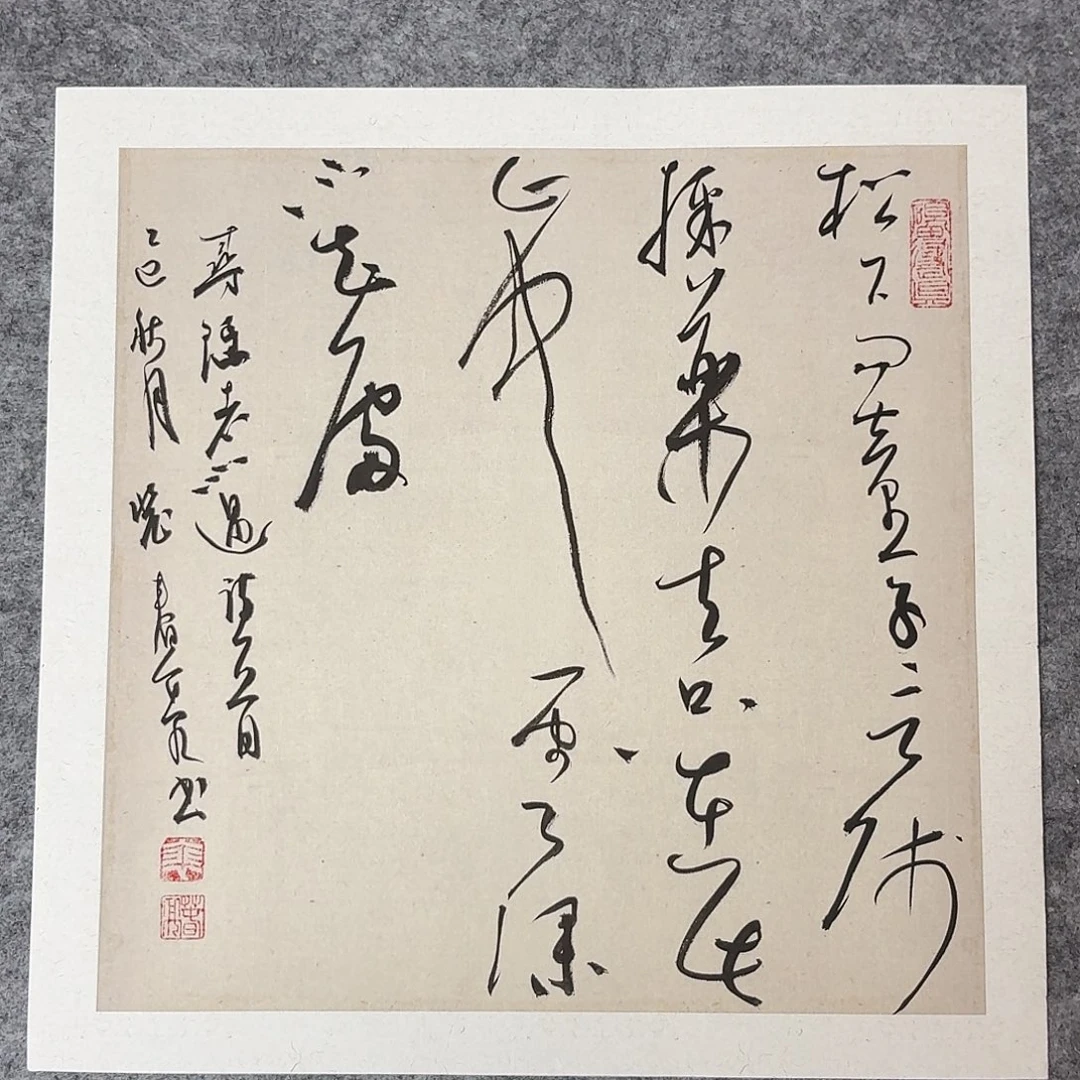 松下問童子言師
採藥去只在此
山中雲深
不知處
尋隱者不遇詩一首
乙巳秋月書